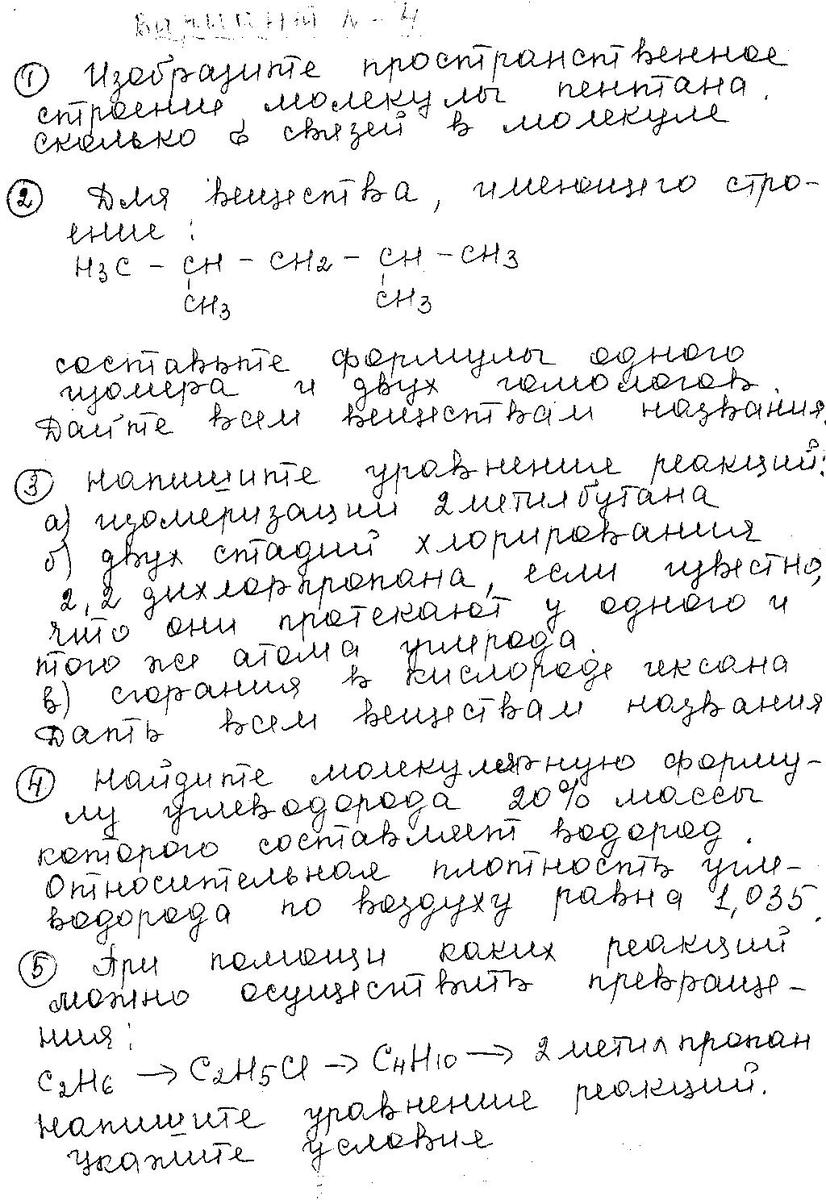 Вариант № - 4
① Изобразите пространственное
строение молекулы пентана.
Сколько б связей в молекуле
② Для вещества, имеющего стро-
ение:
H3C - CH - CH2 - CH - CH3
CH3 CH3
составьте формулы одного
изомера и двух гомологов.
Дайте всем веществам названия.
③ Напишите уравнение реакций:
а) изомеризации 2метилбутана
б) двух стадий хлорирования
2,2 дихлорпропана, если известно,
что они протекают у одного и
того же атома углерода.
в) сгорания в кислороде гексана
Дать всем веществам названия
④ Найдите молекулярную форму-
лу углеводорода 20% массы
которого составляет водород.
Относительная плотность угле-
водорода по воздуху равна 1,035.
⑤ При помощи каких реакций
можно осуществить превраще-
ния:
C2H6 → C2H5Cl → C4H10 → 2метилпропан
Напишите уравнение реакций.
Укажите условие